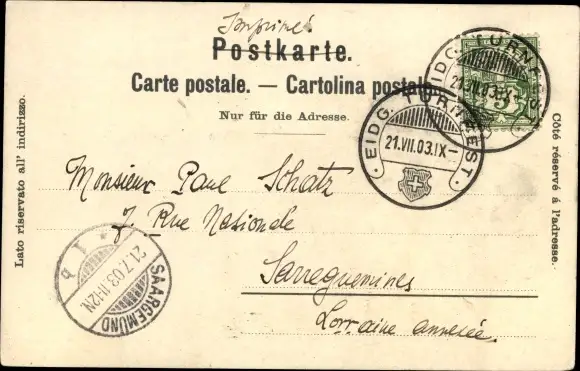 Imprimé
Postkarte.
Carte postale. — Cartolina postale.
Nur für die Adresse.
Lato riservato all' indirizzo.
Côté réservé à l'adresse.
EIDG. TURNFEST.
21.VII.03.IX-
5
EIDG. TURNFEST.
21.VII.03.IX-
Monsieur Paul Schatz
7 Rue Nationale
Sarreguemines
Lorraine annexée.
SAARGEMÜND
21.7.03.11-12N.